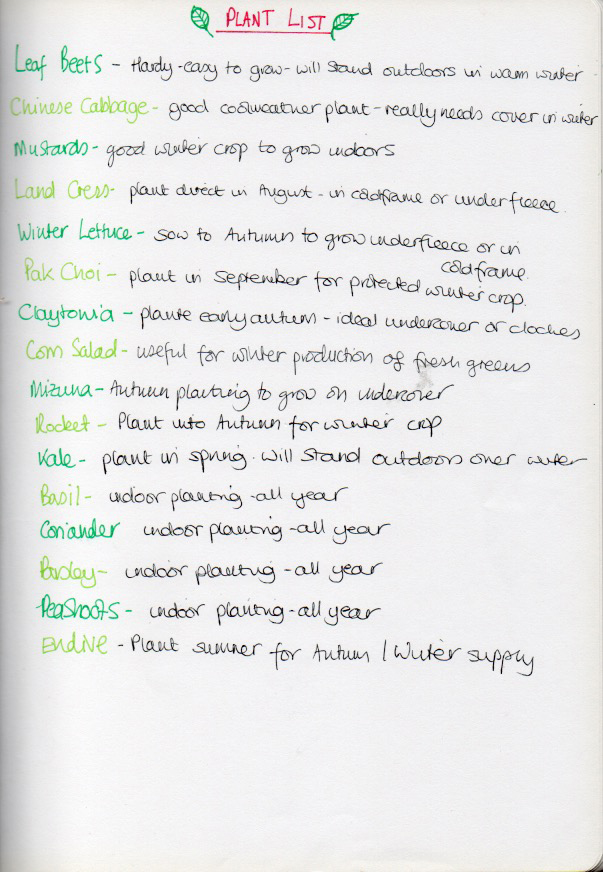 PLANT LIST
Leaf Beets - Hardy - easy to grow - will stand outdoors in warm winter
Chinese Cabbage - good coolweather plant - really needs cover in winter
Mustards - good winter crop to grow indoors
Land Cress - plant direct in August - in coldframe or under fleece.
Winter Lettuce - sow to Autumn to grow underfleece or in
coldframe.
Pak Choi - plant in September for protected winter crop.
Claytonia - plante early autum - ideal undercover or cloches
Corn Salad - useful for winter production of fresh greens
Mizuna - Autumn planting to grow on undercover
Rocket - Plant into Autumn for winter crop
Kale - plant in spring. will stand outdoors over winter
Basil - indoor planting - all year
Coriander indoor planting - all year
Parsley - indoor planting - all year
Peashoots - indoor planting - all year
Endive - Plant summer for Autumn / Winter supply